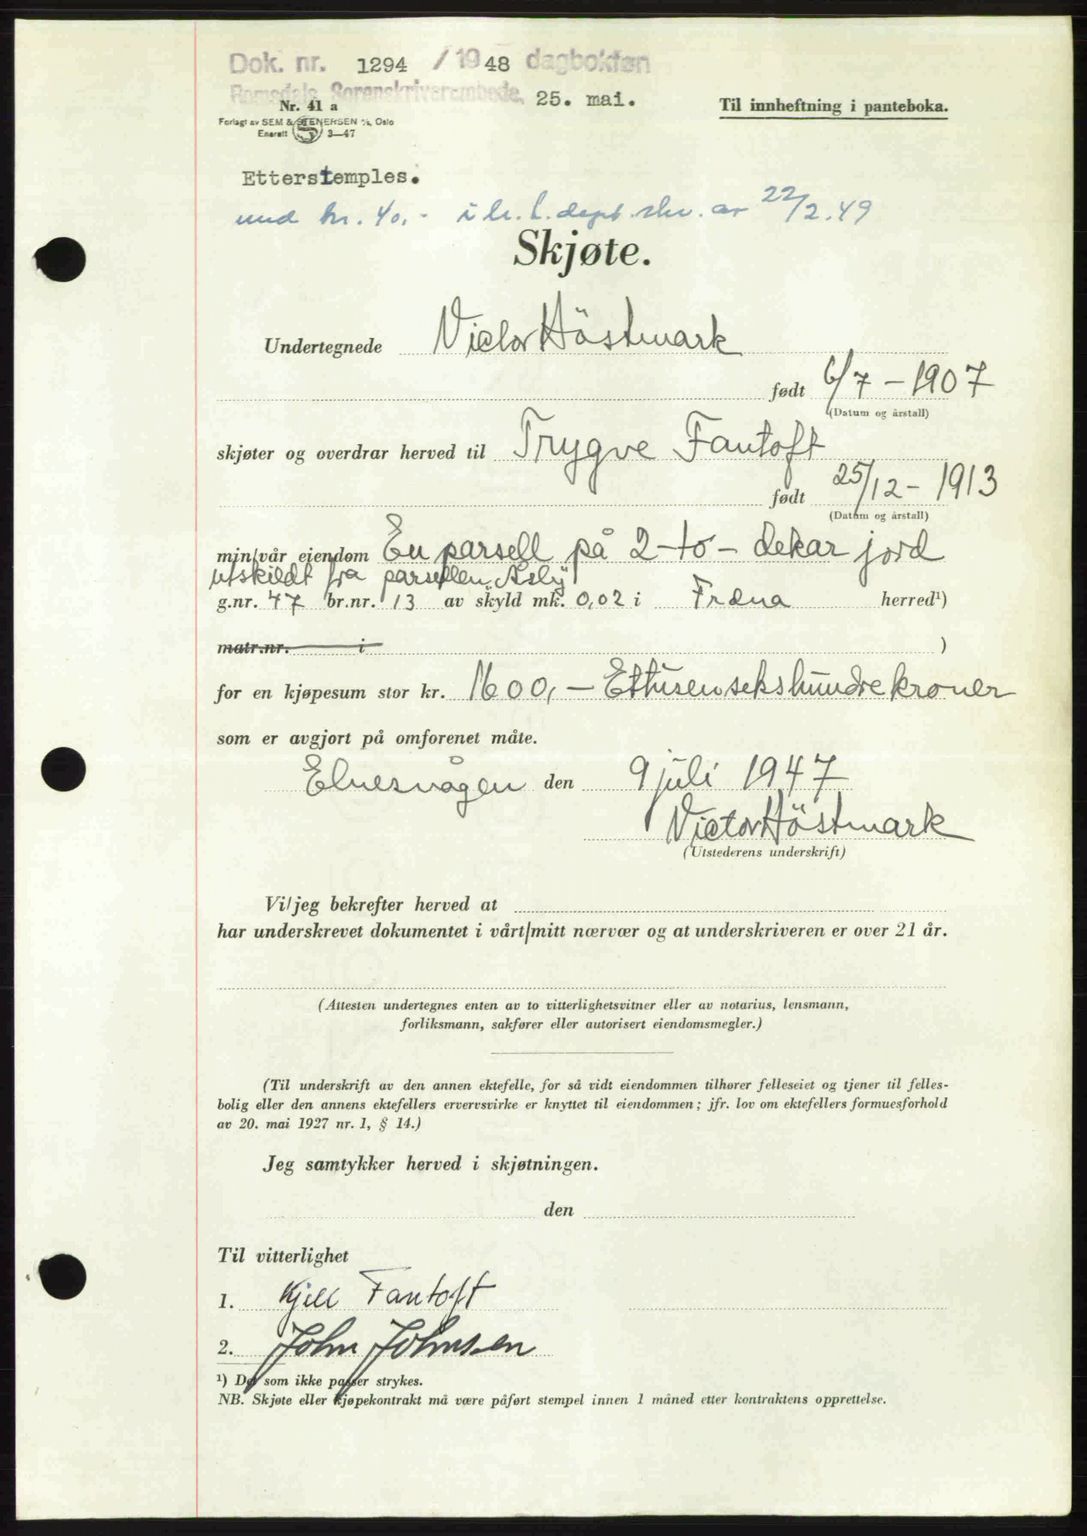 Dok. nr. 1294 / 1948 dagbokført
Romsdals Sorenskriverembede, 25. mai.
Nr. 41 a
Til innheftning i panteboka.
Forlagt av SEM & STENERSEN A/S, Oslo
Enerett S 3—47
Etterstemples.
med kr. 40,- av 22/2.49
Skjøte.
Undertegnede Victor Höstmark
født 6/7 - 1907
(Datum og årstall)
skjøter og overdrar herved til Trygve Fantoft
født 25/12 - 1913
(Datum og årstall)
min/vår eiendom En parsell på 2-to- dekar jord
utskildt fra parsellen Åsly
g.nr. 47 br.nr. 13 av skyld mk. 0,02 i Fræna herred¹)
matr.nr. i )
for en kjøpesum stor kr. 1600,- Ettusensekshundrekroner
som er avgjort på omforenet måte.
Elnesvågen den 9 juli 1947
Victor Höstmark
(Utstederens underskrift)
Vi/jeg bekrefter herved at
har underskrevet dokumentet i vårt/mitt nærvær og at underskriveren er over 21 år.
(Attesten undertegnes enten av to vitterlighetsvitner eller av notarius, lensmann,
forliksmann, sakfører eller autorisert eiendomsmegler.)
(Til underskrift av den annen ektefelle, for så vidt eiendommen tilhører felleseiet og tjener til felles-
bolig eller den annens ektefellers ervervsvirke er knyttet til eiendommen; jfr. lov om ektefellers formuesforhold
av 20. mai 1927 nr. 1, § 14.)
Jeg samtykker herved i skjøtningen.
den
Til vitterlighet
1. Kjell Fantoft
2. John Johnsen
¹) Det som ikke passer strykes.
NB. Skjøte eller kjøpekontrakt må være påført stempel innen 1 måned etter kontraktens opprettelse.